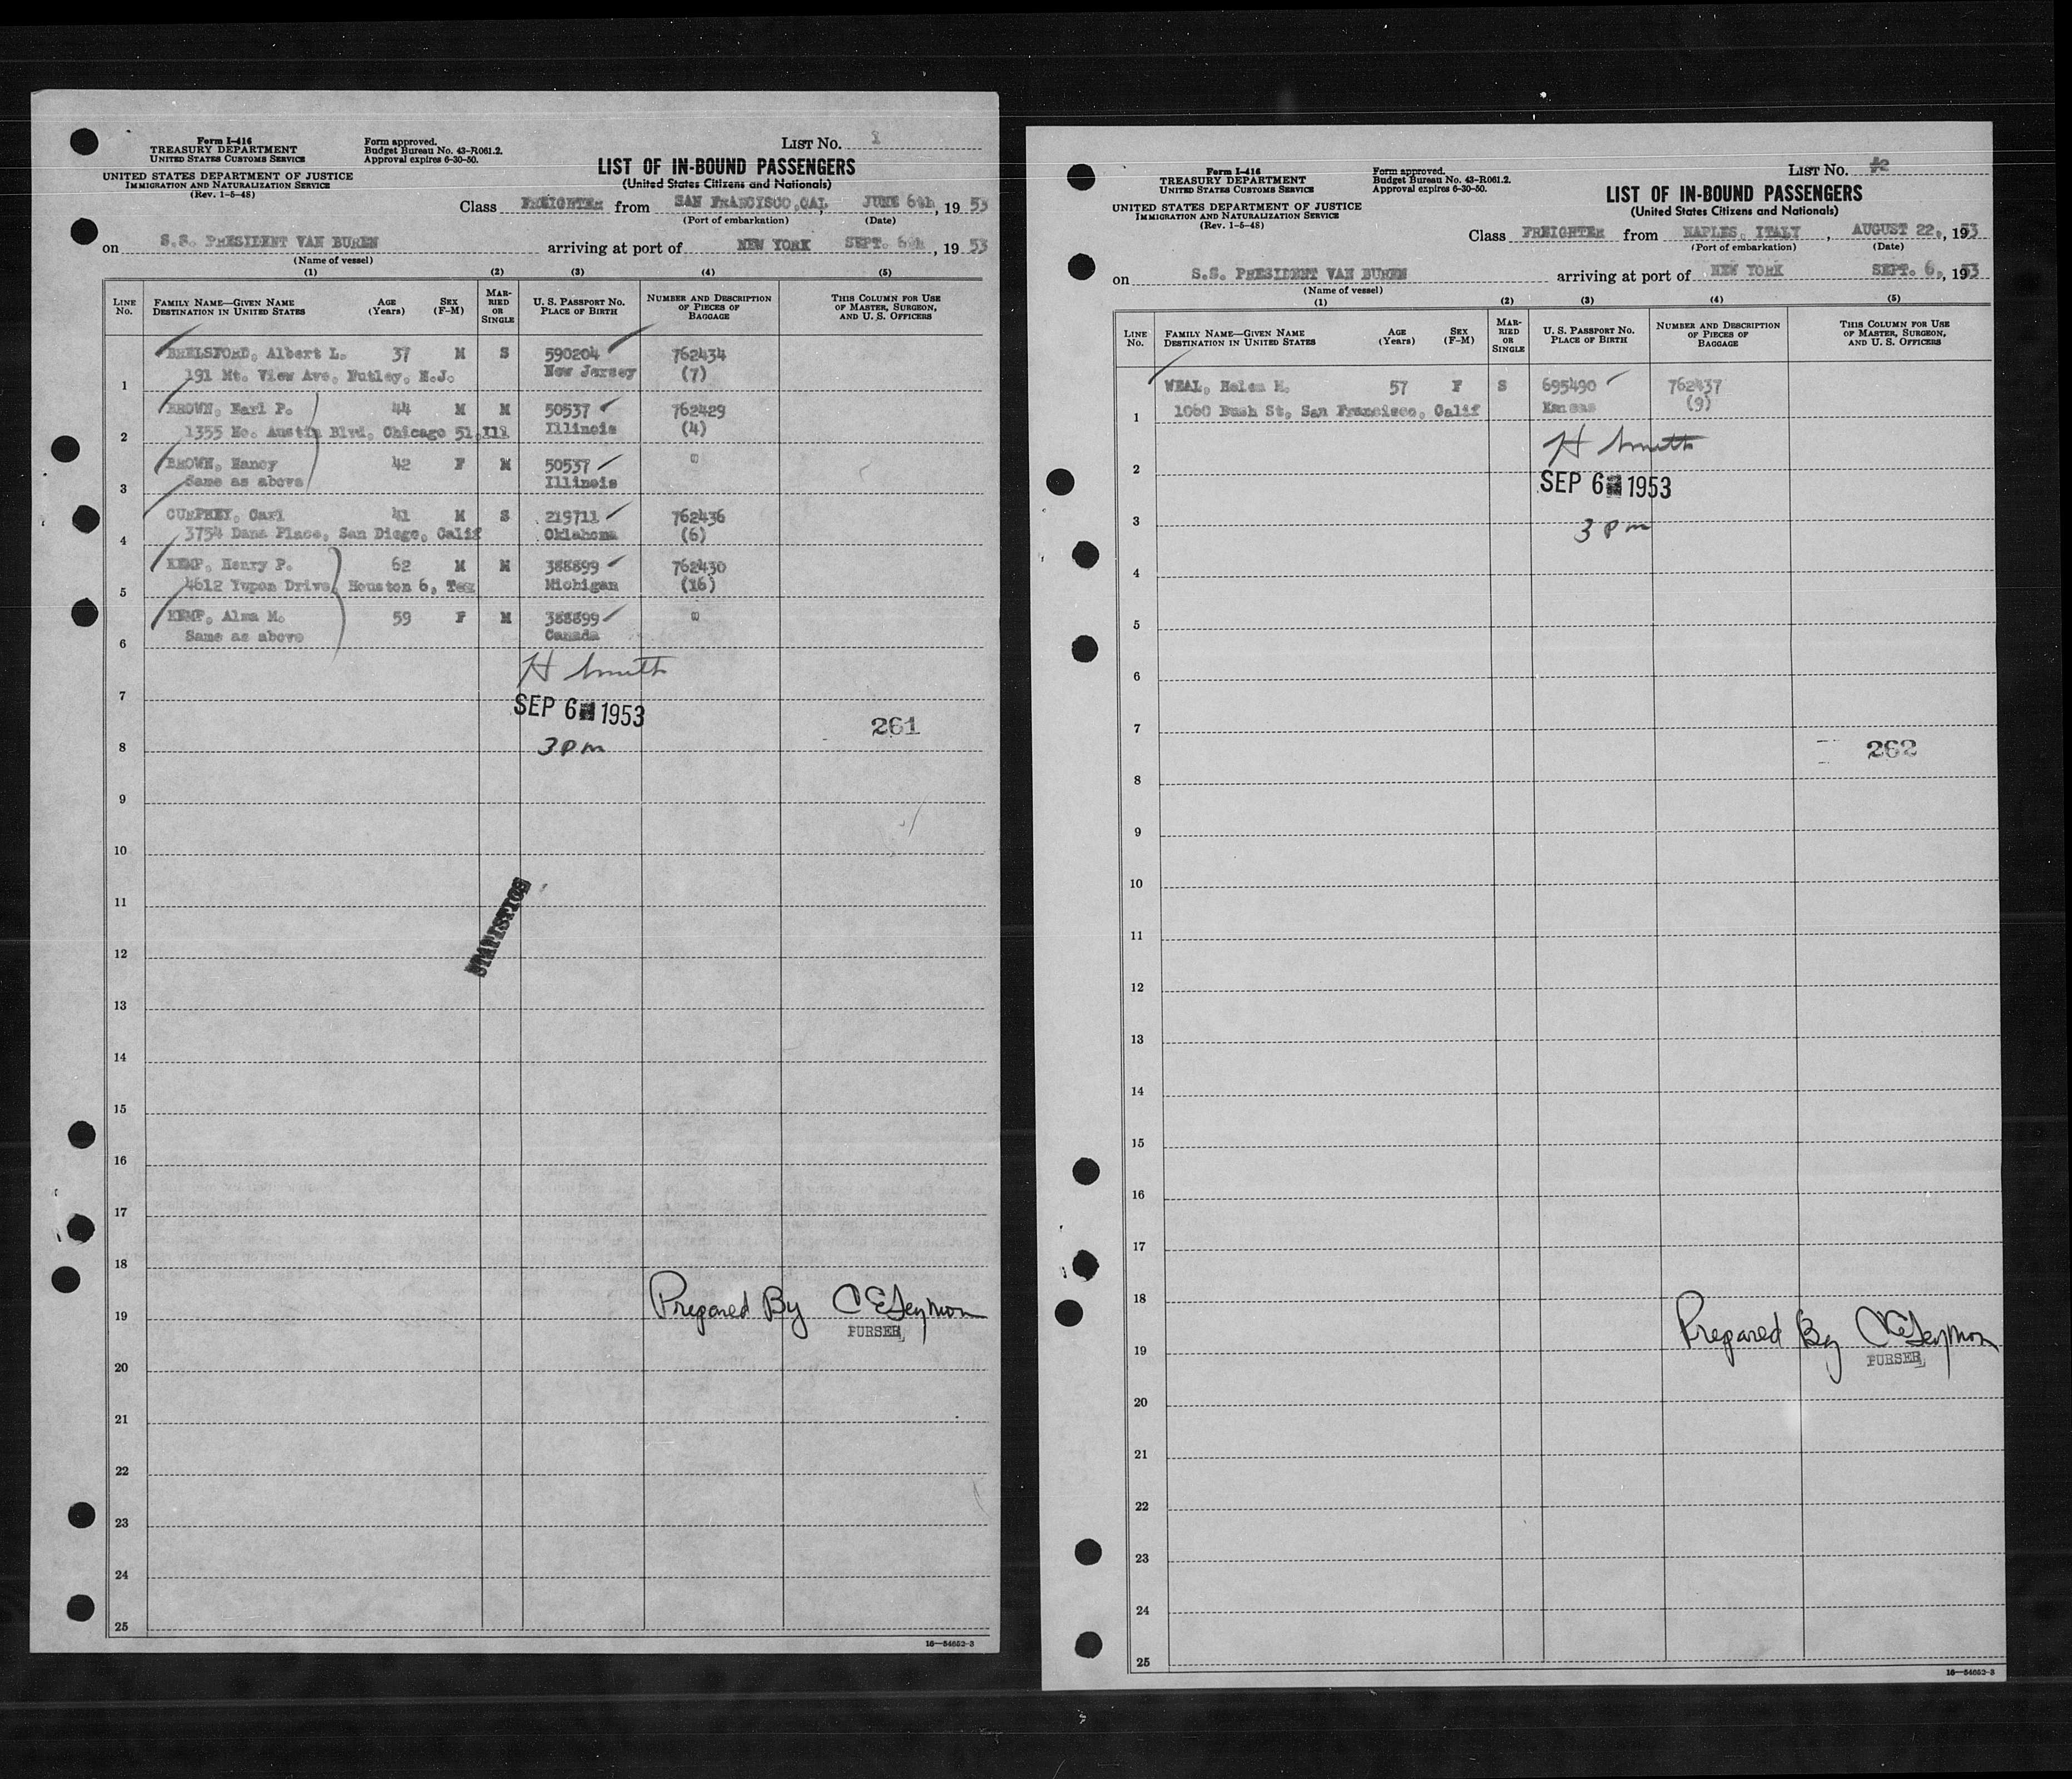 Form I-416
TREASURY DEPARTMENT
UNITED STATES CUSTOMS SERVICE
UNITED STATES DEPARTMENT OF JUSTICE
IMMIGRATION AND NATURALIZATION SERVICE
(Rev. 1-5-48)
Form approved.
Budget Bureau No. 43-R061.2.
Approval expires 6-30-50.
LIST No. 1
LIST OF IN-BOUND PASSENGERS
(United States Citizens and Nationals)
Class FREIGHTER from SAN FRANCISCO, CAL, JUNE 6th, 1953
(Port of embarkation) (Date)
on S.S. PRESIDENT VAN BUREN arriving at port of NEW YORK SEPT. 6th, 1953
(Name of vessel)
(1) (2) (3) (4) (5)
LINE No. FAMILY NAME—GIVEN NAME DESTINATION IN UNITED STATES AGE (Years) SEX (F-M) MARRIED OR SINGLE U. S. PASSPORT No. PLACE OF BIRTH NUMBER AND DESCRIPTION OF PIECES OF BAGGAGE THIS COLUMN FOR USE OF MASTER, SURGEON, AND U. S. OFFICERS
BRELSFORD, Albert L. 37 M S 590204 762434
1 191 Mt. View Ave, Nutley, N.J. New Jersey (7)
BROWN, Earl P. 44 M M 50537 762429
2 1355 No. Austin Blvd, Chicago 51, Ill Illinois (4)
BROWN, Nancy 42 F M 50537 "
3 Same as above Illinois
CUMPHEY, Carl 41 M S 219711 762436
4 3754 Dana Place, San Diego, Calif Oklahoma (6)
KEMP, Henry P. 62 M M 388899 762430
5 4612 Yupon Drive, Houston 6, Tex Michigan (16)
KEMP, Alma M. 59 F M 388899 "
6 Same as above Canada
H Smith
7 SEP 6 1953
261
8 3 pm
9
10
11
STATISTICS
12
13
14
15
16
17
18
19 Prepared By C E Seymour
PURSER
20
21
22
23
24
25
16—54652-3
Form I-416
TREASURY DEPARTMENT
UNITED STATES CUSTOMS SERVICE
UNITED STATES DEPARTMENT OF JUSTICE
IMMIGRATION AND NATURALIZATION SERVICE
(Rev. 1-5-48)
Form approved.
Budget Bureau No. 43-R061.2.
Approval expires 6-30-50.
LIST No. #2
LIST OF IN-BOUND PASSENGERS
(United States Citizens and Nationals)
Class FREIGHTER from NAPLES, ITALY, AUGUST 22, 1953
(Port of embarkation) (Date)
on S.S. PRESIDENT VAN BUREN arriving at port of NEW YORK SEPT. 6, 1953
(Name of vessel)
(1) (2) (3) (4) (5)
LINE No. FAMILY NAME—GIVEN NAME DESTINATION IN UNITED STATES AGE (Years) SEX (F-M) MARRIED OR SINGLE U. S. PASSPORT No. PLACE OF BIRTH NUMBER AND DESCRIPTION OF PIECES OF BAGGAGE THIS COLUMN FOR USE OF MASTER, SURGEON, AND U. S. OFFICERS
WEAL, Helen H. 57 F S 695490 762437
1 1060 Bush St, San Francisco, Calif Kansas (9)
H Smith
2 SEP 6 1953
3 3 pm
4
5
6
7
262
8
9
10
11
12
13
14
15
16
17
18
19 Prepared By C E Seymour
PURSER
20
21
22
23
24
25
16—54652-3